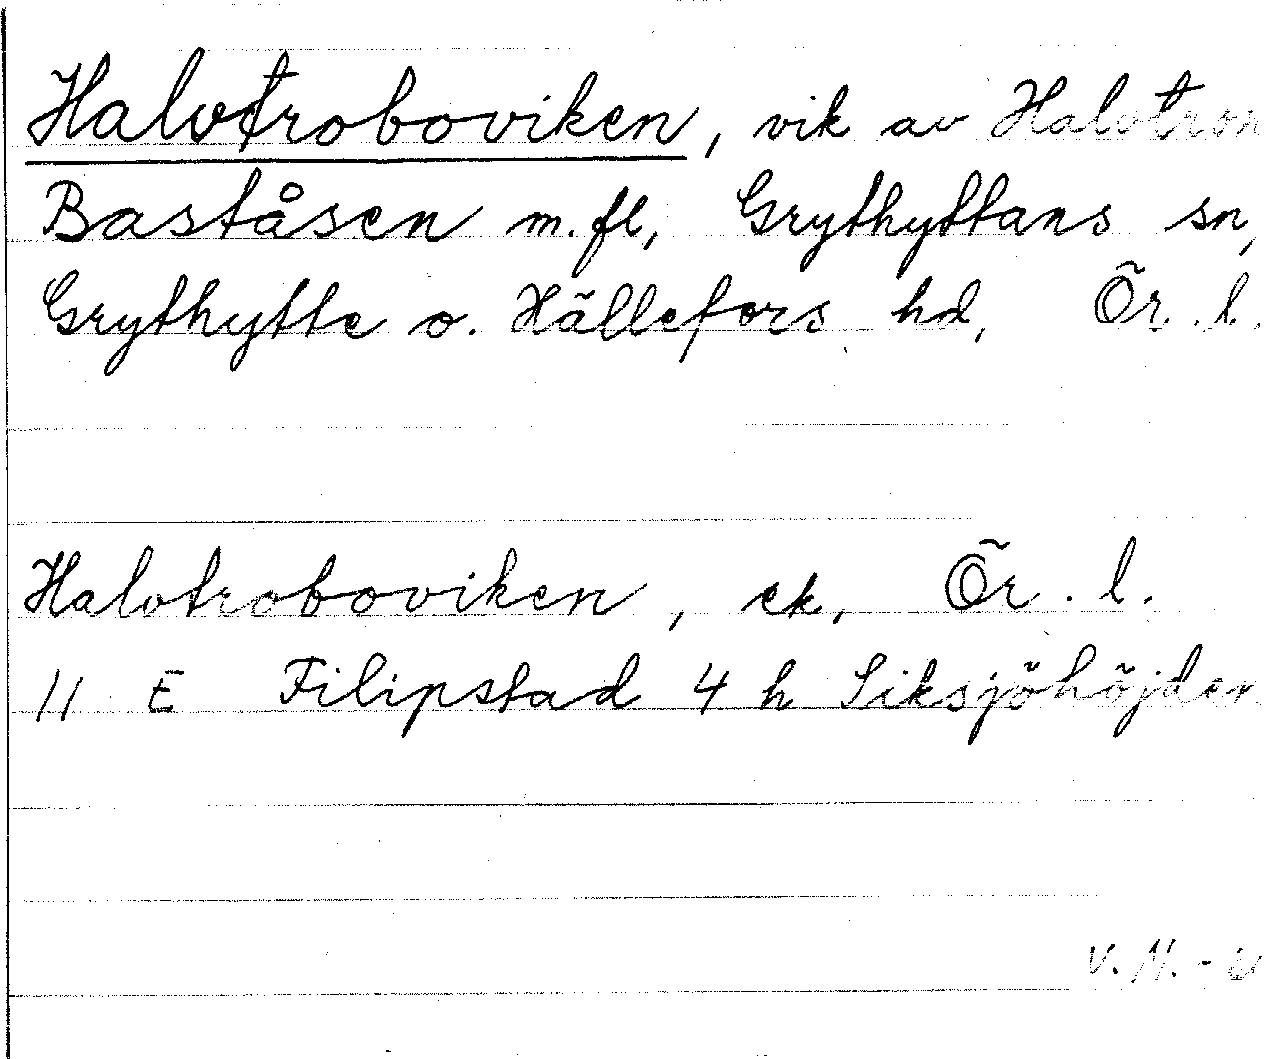 Halvtroboviken, vik av Halvtron
Baståsen m.fl, Grythyttans sn,
Grythytte o. Hällefors hd, Ör. l.
Halvtroboviken, ek, Ör. l.
11 E Filipstad 4 h Siksjöhöjden
V. N. -